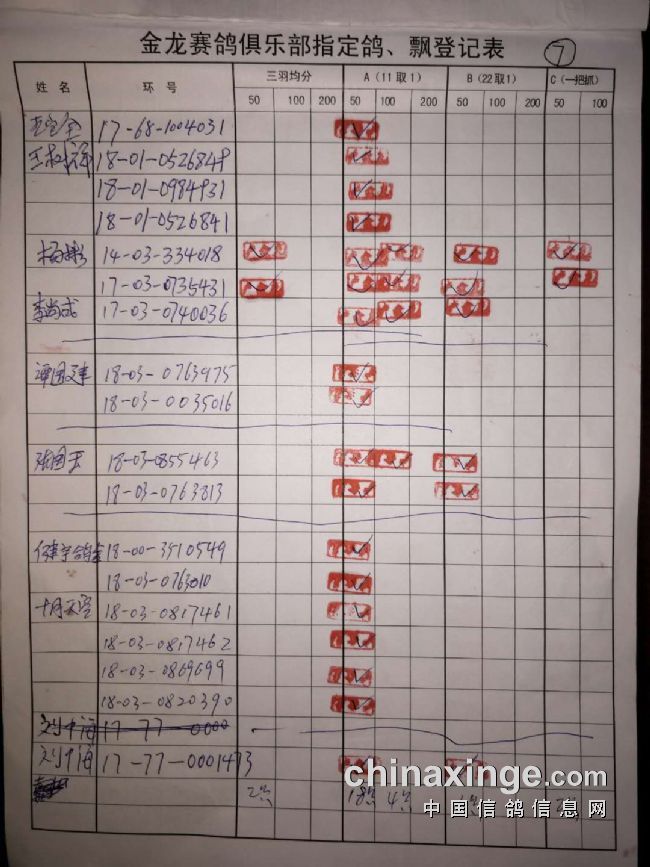 金龙赛鸽俱乐部指定鸽、飘登记表 7
姓名 环号 三羽均分 A(11取1) B(22取1) C(一把抓)
50 100 200 50 100 200 50 100 50 100
17-68-1004031
18-01-0526849
18-01-0984931
18-01-0526841
14-03-334018
17-03-0735431
李尚成 17-03-0740036
谭国文 18-03-0763975
18-03-0035016
张国玉 18-03-0855463
18-03-0763813
18-00-3510549
18-03-0763010
十月天空 18-03-0817461
18-03-0817462
18-03-0869699
18-03-0820390
刘中海 17-77-0000
刘中海 17-77-0001473
2只 18只 4只
chinaxinge.com
中国信鸽信息网